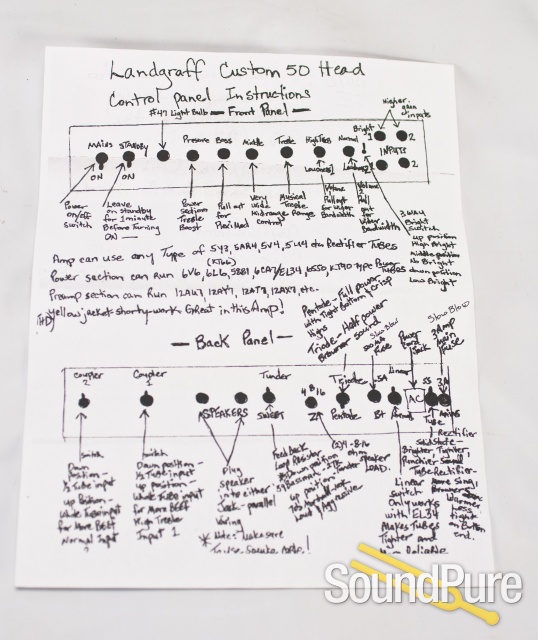 Landgraff Custom 50 Head
Control Panel Instructions
#47 Light Bulb — Front Panel —
Higher gain inputs
Mains
Standby
Presence
Bass
Middle
Treble
High Treble
Normal
Bright
1
2
INPUTS
2
ON
ON
Loudness 1
Loudness 2
Power on/off switch
Leave on standby for 1 minute Before Turning ON —
Power section Treble Boost
Pull out for Plexi Mod
Very wide Midrange control
Musical Treble Range
Volume 1 Pull out for wider Bandwidth
Volume 2 Pull for wider Bandwidth
3 WAY Bright Switch
up position High Bright
middle position No Bright
down position Low Bright
Amp can use any Type of 5Y3, 5AR4, 5V4, 5U4 etc Rectifier Tubes
(KT66)
Power section can Run 6V6, 6L6, 5881, 6CA7/EL34, 6550 KT90 type Power Tubes
Preamp section can Run 12AU7, 12AY7, 12AT7, 12AX7, etc.
Yellow jacket shorty-work Great in this Amp!
Pentode - Full power with Tight Bottom & Crisp Highs
Triode - Half power Browner sound
— Back Panel —
Slow Blow
500 MA Fuse
Power Cord Jack
Slow Blow
3 Amp Main Fuse
Coupler 2
Coupler 1
SPEAKERS
Tweeter
SWEET
4 8 16
Z
Triode
Pentode
.5A
B+
Linear
AC
SS
Tube
3A
Mains
switch
Down position - 1/2 Tube input
up Position - Whole Tube input for More Beef
Normal Input 2
switch
Down position - 1/2 Tube input
up position - Whole Tube input for More Beef
High Treble Input 1
Plug speaker into either Jack - parallel Wiring
* Note: make sure
Feed Back Loop Resistor
4-8-16 ohm speaker LOAD.
Linear switch Only works with EL34
Makes Tubes Tighter and
Reliable
Rectifier
Solid State - Brighter, Tighter, Punchier
Tube Rectifier -
Warmer, Less Tight on Bottom end.
SoundPure